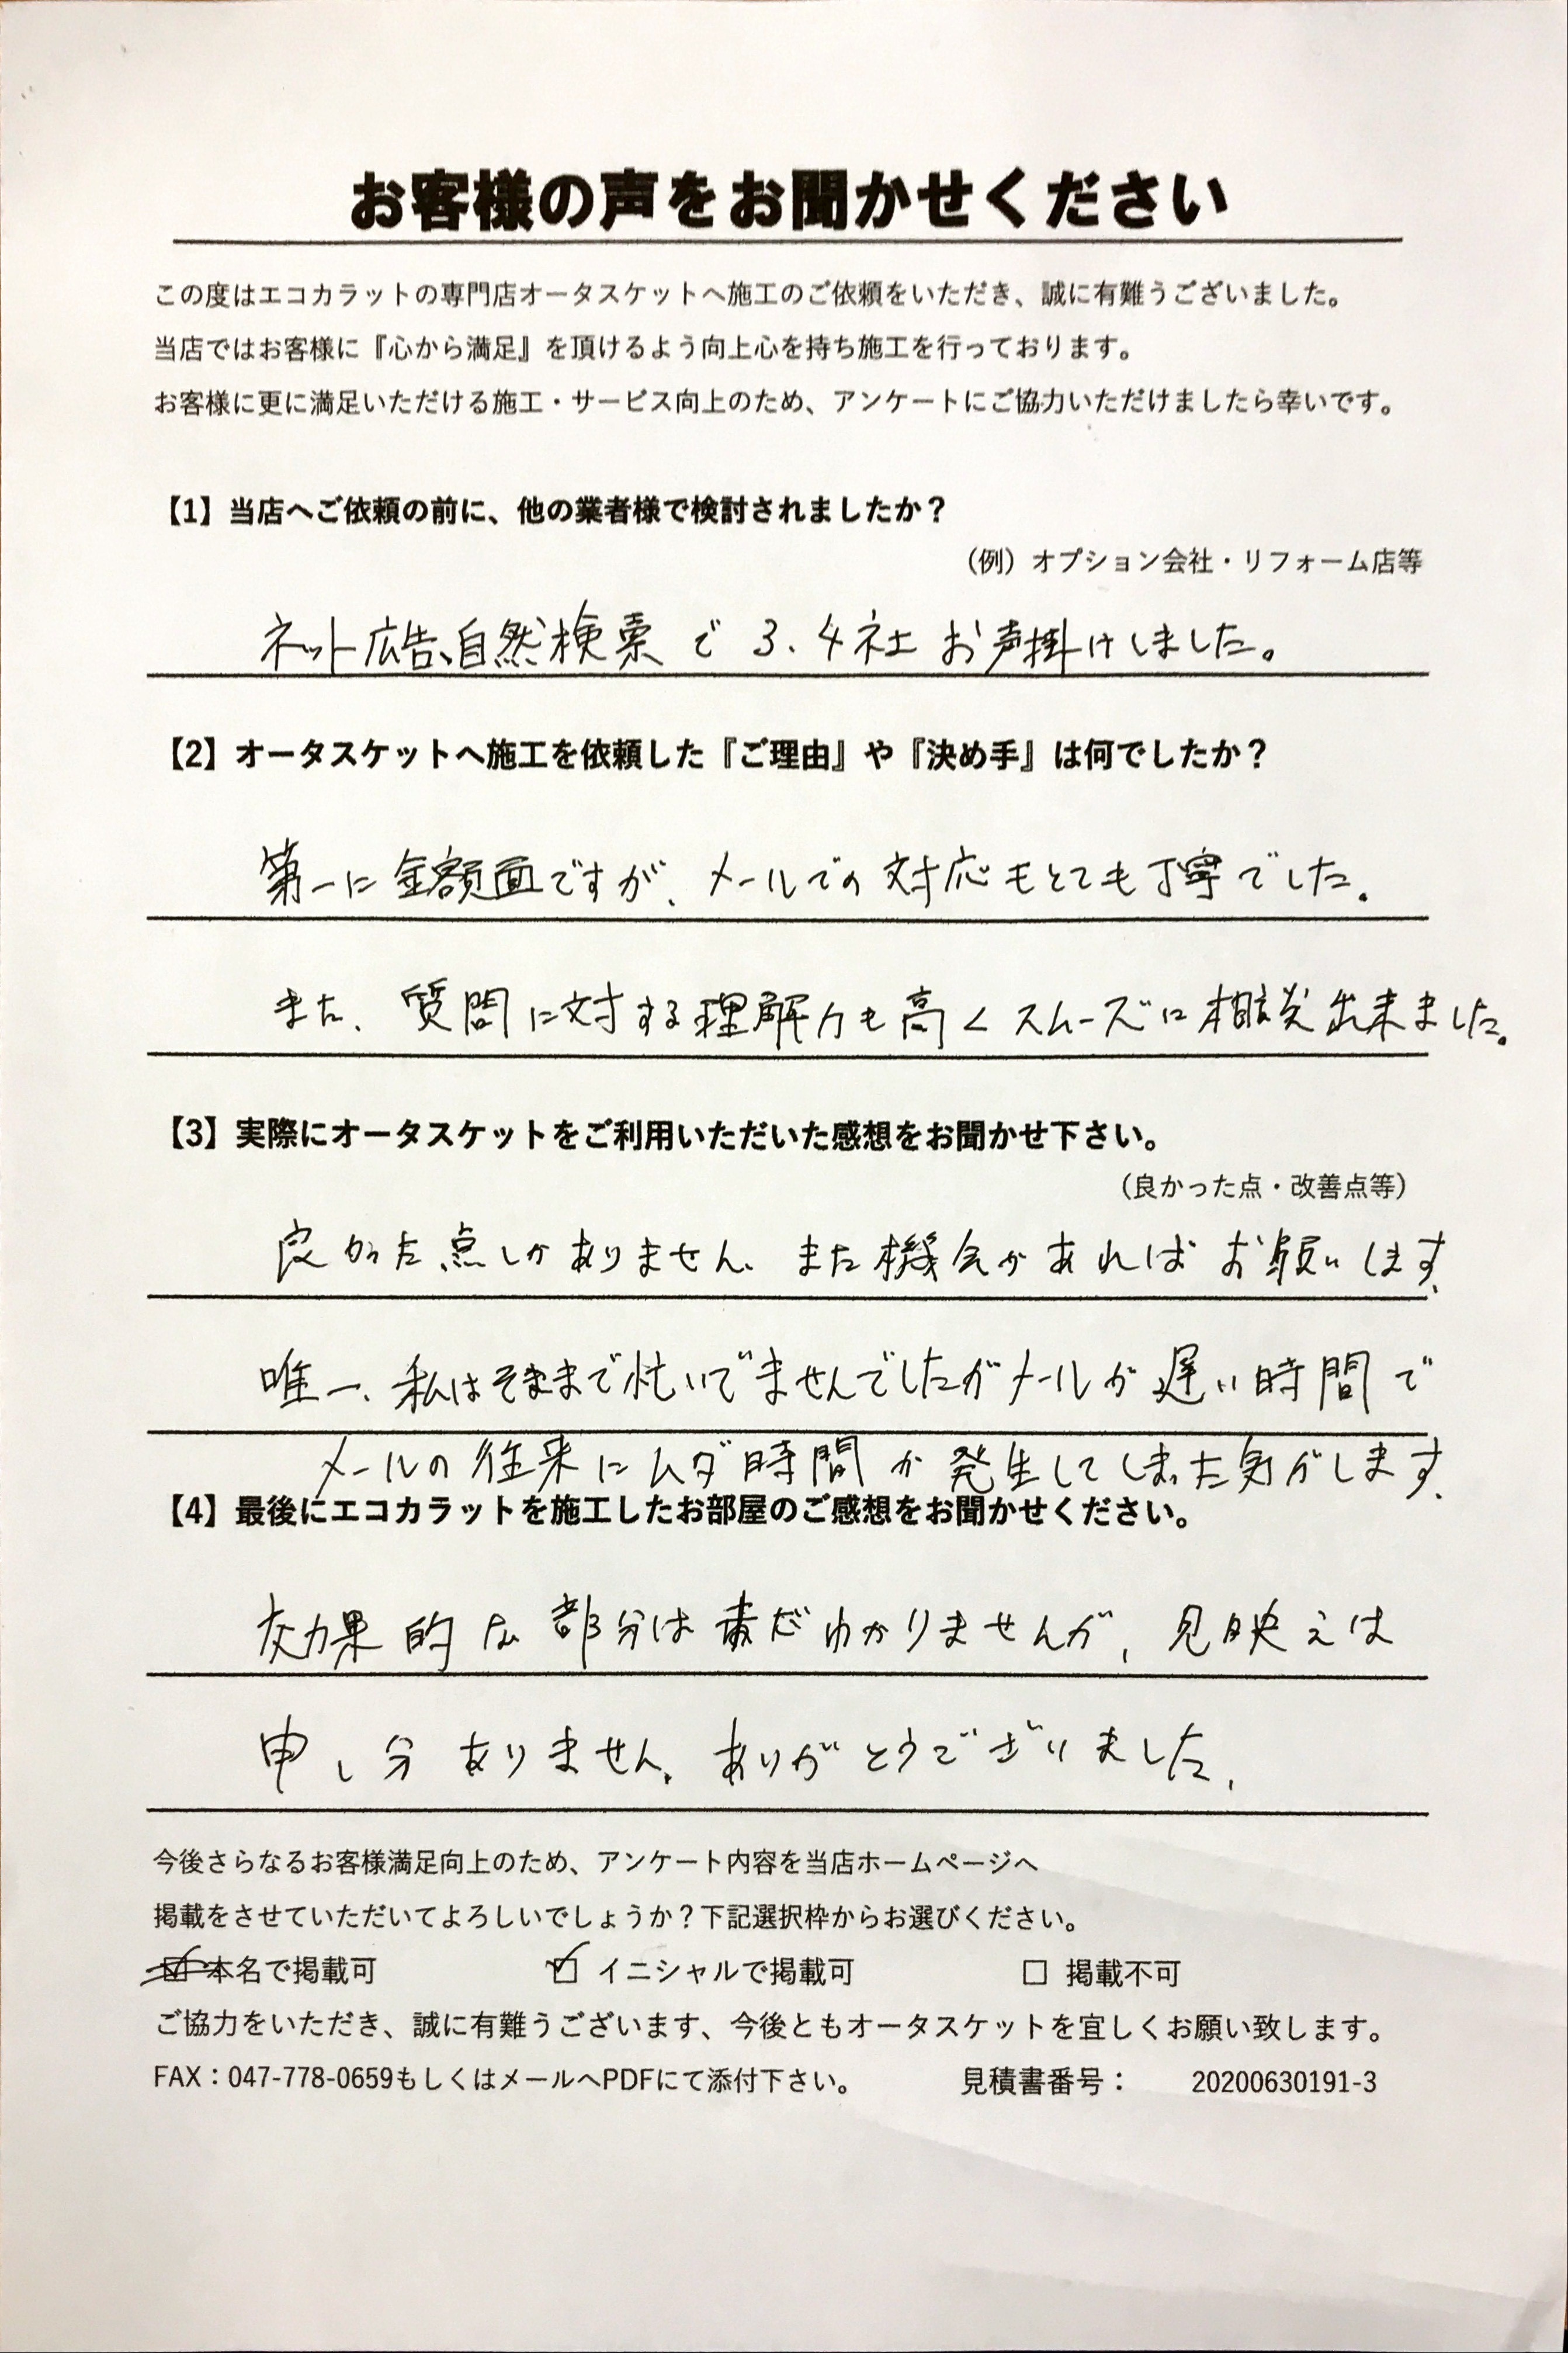 お客様の声をお聞かせください
この度はエコカラットの専門店オータスケットへ施工のご依頼をいただき、誠に有難うございました。
当店ではお客様に『心から満足』を頂けるよう向上心を持ち施工を行っております。
お客様に更に満足いただける施工・サービス向上のため、アンケートにご協力いただけましたら幸いです。
【1】当店へご依頼の前に、他の業者様で検討されましたか？
（例）オプション会社・リフォーム店等
ネット広告、自然検索で3、4社お声掛けしました。
【2】オータスケットへ施工を依頼した『ご理由』や『決め手』は何でしたか？
第一に金額面ですが、メールでの対応もとても丁寧でした。
また、質問に対する理解力も高くスムーズに相談出来ました。
【3】実際にオータスケットをご利用いただいた感想をお聞かせ下さい。
（良かった点・改善点等）
良かった点しかありません。また機会があればお願いします。
唯一、私はそままで忙いでませんでしたがメールが遅い時間で
メールの往来にムダ時間が発生してしまった気がします。
【4】最後にエコカラットを施工したお部屋のご感想をお聞かせください。
効果的な部分はまだわかりませんが、見映えは
申し分ありません。ありがとうございました。
今後さらなるお客様満足向上のため、アンケート内容を当店ホームページへ
掲載をさせていただいてよろしいでしょうか？下記選択枠からお選びください。
☑本名で掲載可 ☑ イニシャルで掲載可 □ 掲載不可
ご協力をいただき、誠に有難うございます、今後ともオータスケットを宜しくお願い致します。
FAX：047-778-0659もしくはメールへPDFにて添付下さい。 見積書番号： 20200630191-3